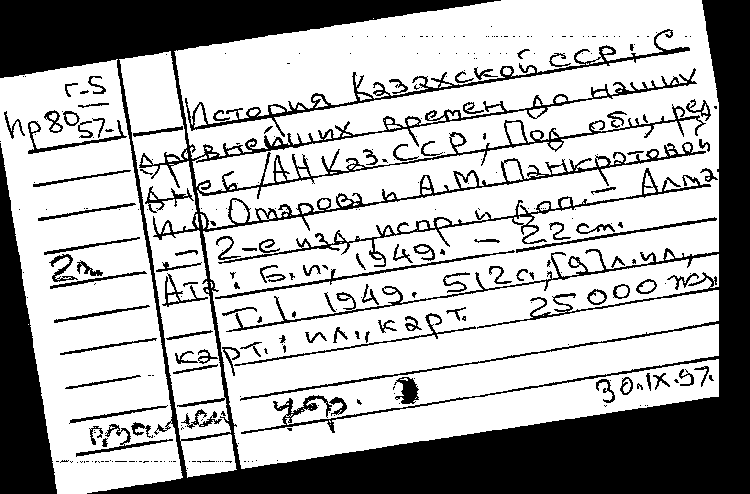 Г-5
Нр80 57-1
История Казахской ССР: С
древнейших времен до наших
дней /АН Каз.ССР; Под общ. ред.
И.О. Омарова и А.М. Панкратовой
. – 2-е изд. испр. и доп. – Алма-
2т.
Ата: Б.и., 1949. – 22 см.
Т.I. 1949. 512с., [9] л.ил.,
карт.: ил., карт. 25000 экз.
взамен
30.IX.97.